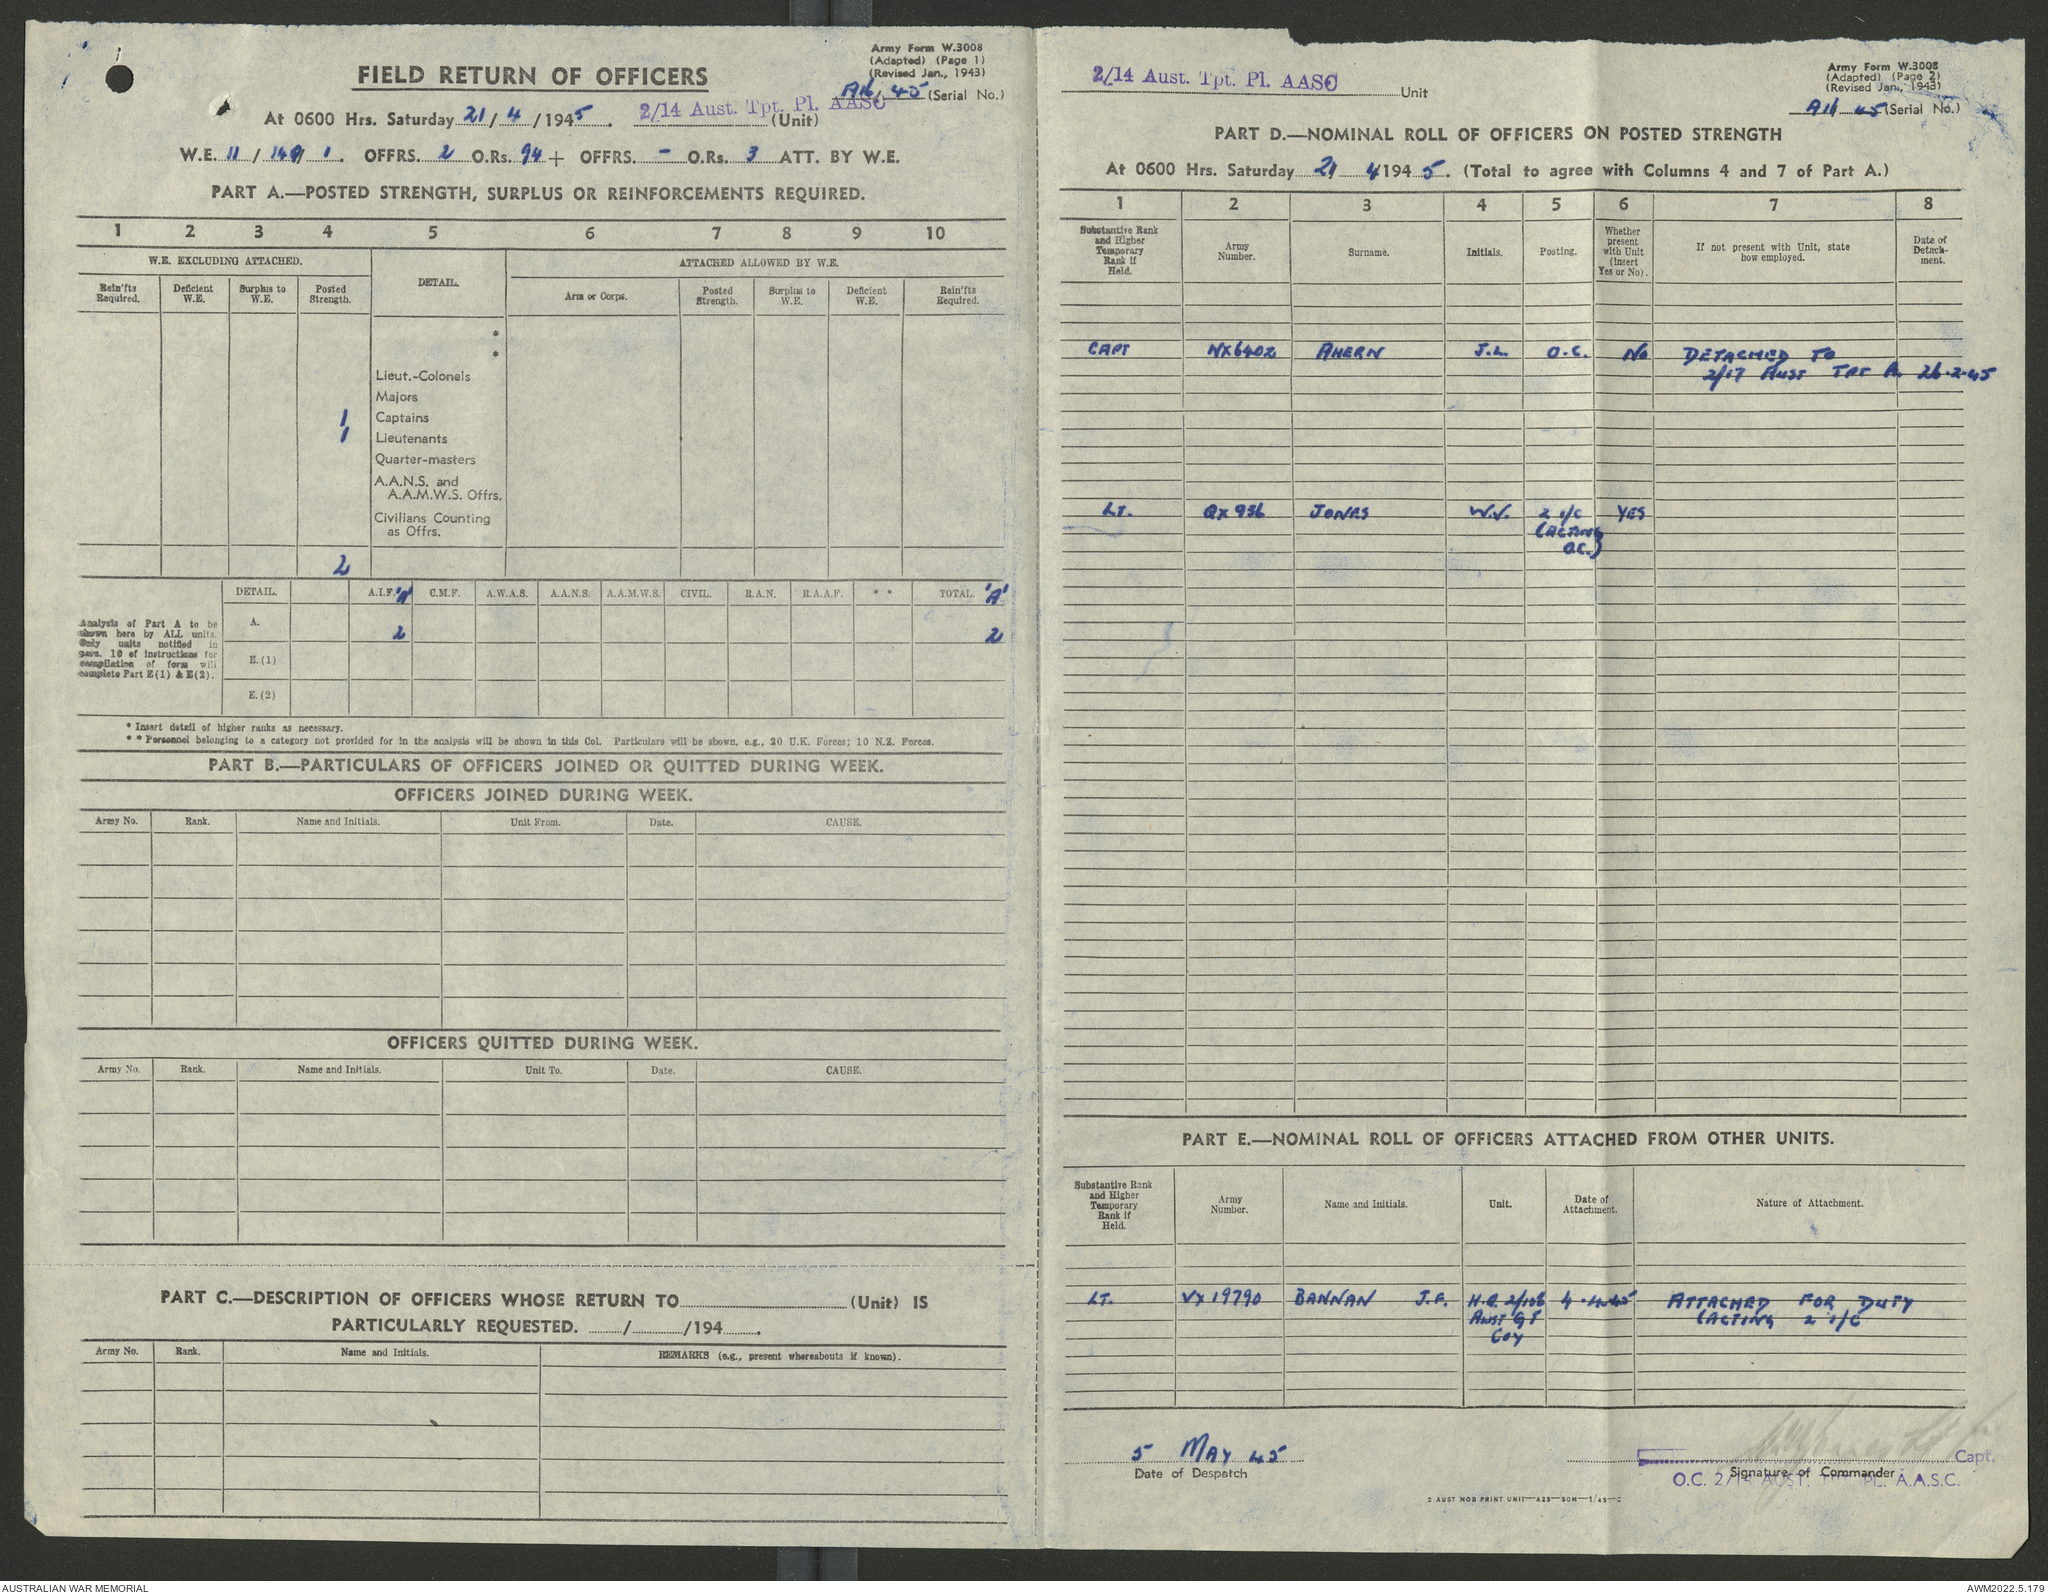 Army Form W.3008
(Adapted) (Page 1)
(Revised Jan., 1943)
A16/45 (Serial No.)
FIELD RETURN OF OFFICERS
At 0600 Hrs. Saturday 21/4/1945. 2/14 Aust. Tpt. Pl. AASC (Unit)
W.E. 11/149/1. OFFRS. 2 O.Rs. 94 + OFFRS. - O.Rs. 3 ATT. BY W.E.
PART A.—POSTED STRENGTH, SURPLUS OR REINFORCEMENTS REQUIRED.
1 2 3 4 5 6 7 8 9 10
W.E. EXCLUDING ATTACHED. DETAIL. ATTACHED ALLOWED BY W.E.
Rein'fts Required. Deficient W.E. Surplus to W.E. Posted Strength. Arm or Corps. Posted Strength. Surplus to W.E. Deficient W.E. Rein'fts Required.
*
*
Lieut.-Colonels
Majors
1 Captains
1 Lieutenants
Quarter-masters
A.A.N.S. and
A.A.M.W.S. Offrs.
Civilians Counting
as Offrs.
2
DETAIL. A.I.F. 'A' C.M.F. A.W.A.S. A.A.N.S. A.A.M.W.S. CIVIL. R.A.N. R.A.A.F. * * TOTAL. 'A'
Analysis of Part A to be
shown here by ALL units.
Only units notified in
para. 10 of instructions for
compilation of form will
complete Part E(1) & E(2).
A. 2 2
E.(1)
E.(2)
* Insert detail of higher ranks as necessary.
* * Personnel belonging to a category not provided for in the analysis will be shown in this Col. Particulars will be shown, e.g., 20 U.K. Forces; 10 N.Z. Forces.
PART B.—PARTICULARS OF OFFICERS JOINED OR QUITTED DURING WEEK.
OFFICERS JOINED DURING WEEK.
Army No. Rank. Name and Initials. Unit From. Date. CAUSE.
OFFICERS QUITTED DURING WEEK.
Army No. Rank. Name and Initials. Unit To. Date. CAUSE.
PART C.—DESCRIPTION OF OFFICERS WHOSE RETURN TO (Unit) IS
PARTICULARLY REQUESTED. / /194 .
Army No. Rank. Name and Initials. REMARKS (e.g., present whereabouts if known).
2/14 Aust. Tpt. Pl. AASC Unit
Army Form W.3008
(Adapted) (Page 2)
(Revised Jan., 1943)
A16 45 (Serial No.)
PART D.—NOMINAL ROLL OF OFFICERS ON POSTED STRENGTH
At 0600 Hrs. Saturday 21 4 1945. (Total to agree with Columns 4 and 7 of Part A.)
1 2 3 4 5 6 7 8
Substantive Rank and Higher Temporary Rank if Held. Army Number. Surname. Initials. Posting. Whether present with Unit (insert Yes or No). If not present with Unit, state how employed. Date of Detach-ment.
CAPT NX6402 AHERN J.L. O.C. No DETACHED TO
2/17 AUST TPT PL 26-2-45
LT. QX956 JONES W.V. 2 i/c YES
(ACTING
OC.)
PART E.—NOMINAL ROLL OF OFFICERS ATTACHED FROM OTHER UNITS.
Substantive Rank and Higher Temporary Rank if Held. Army Number. Name and Initials. Unit. Date of Attachment. Nature of Attachment.
LT. VX19790 BANNAN J.F. H.Q. 2/106 4-4-45 ATTACHED FOR DUTY
AUST GT (ACTING 2 i/c
Coy
5 MAY 45
Date of Despatch
Capt.
Signature of Commander
O.C. 2/14 AUST. TPT PL. A.A.S.C.
2 AUST MOB PRINT UNIT—A23—50M—1/45—C
AUSTRALIAN WAR MEMORIAL AWM2022.5.179